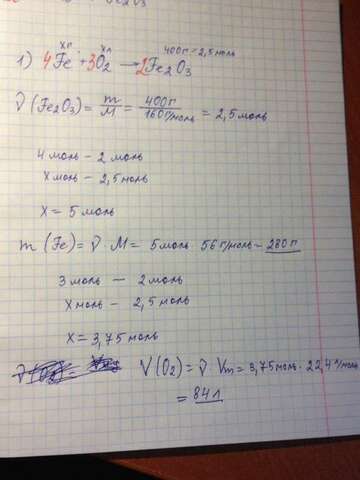 Fe₂O₃
хг хл 400г = 2,5 моль
1) 4Fe + 3O₂ → 2Fe₂O₃
ν (Fe₂O₃) = m/M = 400г/160г/моль = 2,5 моль
4 моль – 2 моль
х моль – 2,5 моль
х = 5 моль
m (Fe) = ν · M = 5 моль · 56 г/моль = 280 г
3 моль — 2 моль
х моль – 2,5 моль
х = 3,75 моль
V (O₂) = ν · Vm = 3,75 моль · 22,4 л/моль
= 84 л